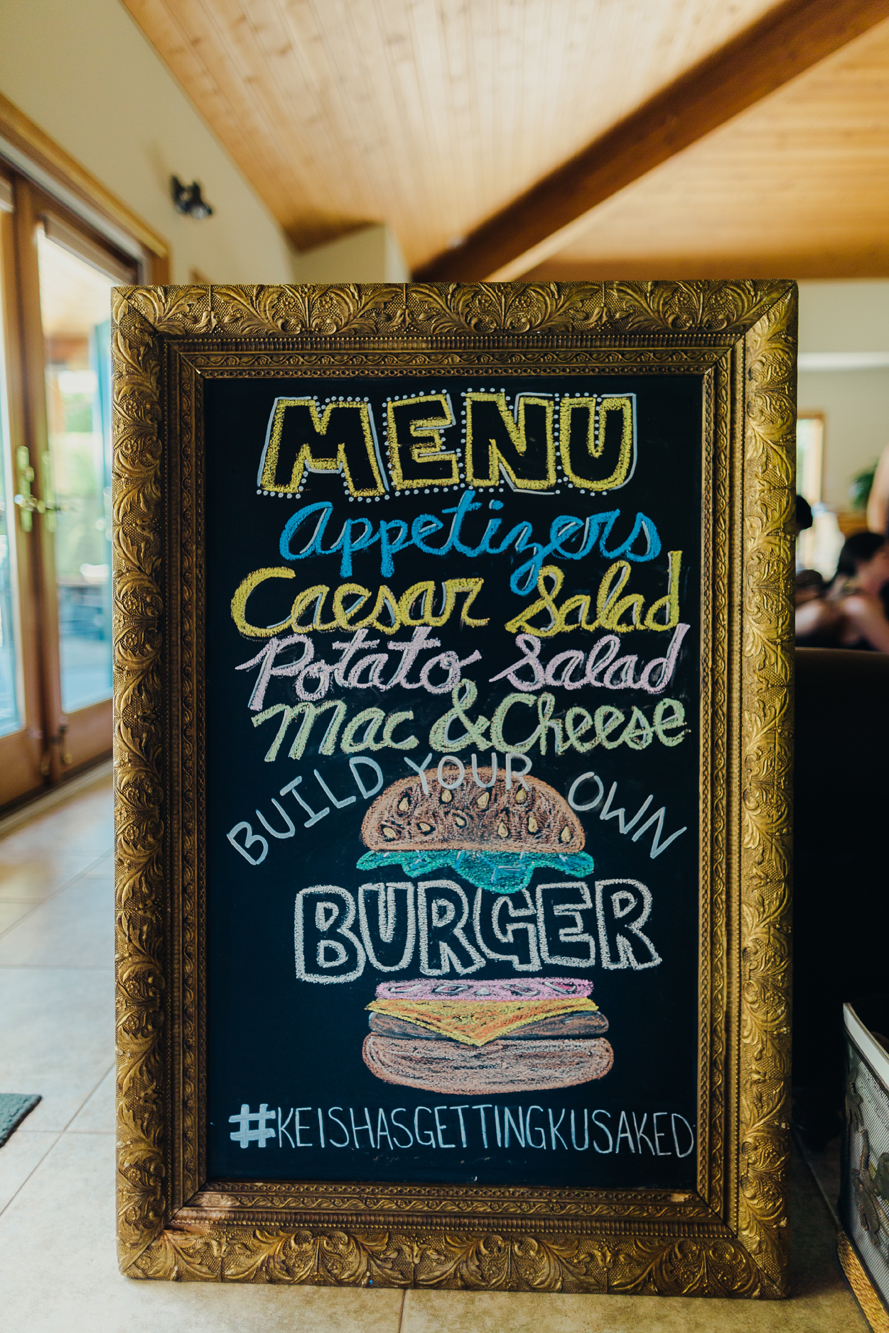 MENU
Appetizers
Caesar Salad
Potato Salad
Mac & Cheese
BUILD YOUR OWN
BURGER
#KEISHASGETTINGKUSAKED